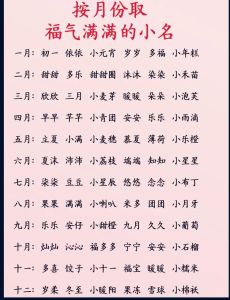 按月份取
福气满满的小名
一月：初一 依依 小元宵 岁岁 多福 小年糕
二月：甜甜 多乐 甜甜圈 沐沐 朵朵 小禾苗
三月：欣欣 三月 小麦芽 暖暖 朵朵 小泡芙
四月：早早 芊芊 小青团 安安 乐乐 小雨滴
五月：立夏 小满 小麦穗 慕夏 薄荷 小乐橙
六月：夏沫 沛沛 小荔枝 端端 知知 小星星
七月：柒柒 豆豆 小星辰 悠悠 念念 小布丁
八月：果果 满满 小喇叭 来多 团团 小月牙
九月：乐乐 安仔 小甜橙 九月 久久 小葡萄
十月：灿灿 沁沁 福多多 宁宁 安安 小石榴
十一：多喜 饺子 小十一 福宝 暖暖 小糯米
十二：小柔 冬至 小暖阳 果冻 雪球 小棉袄